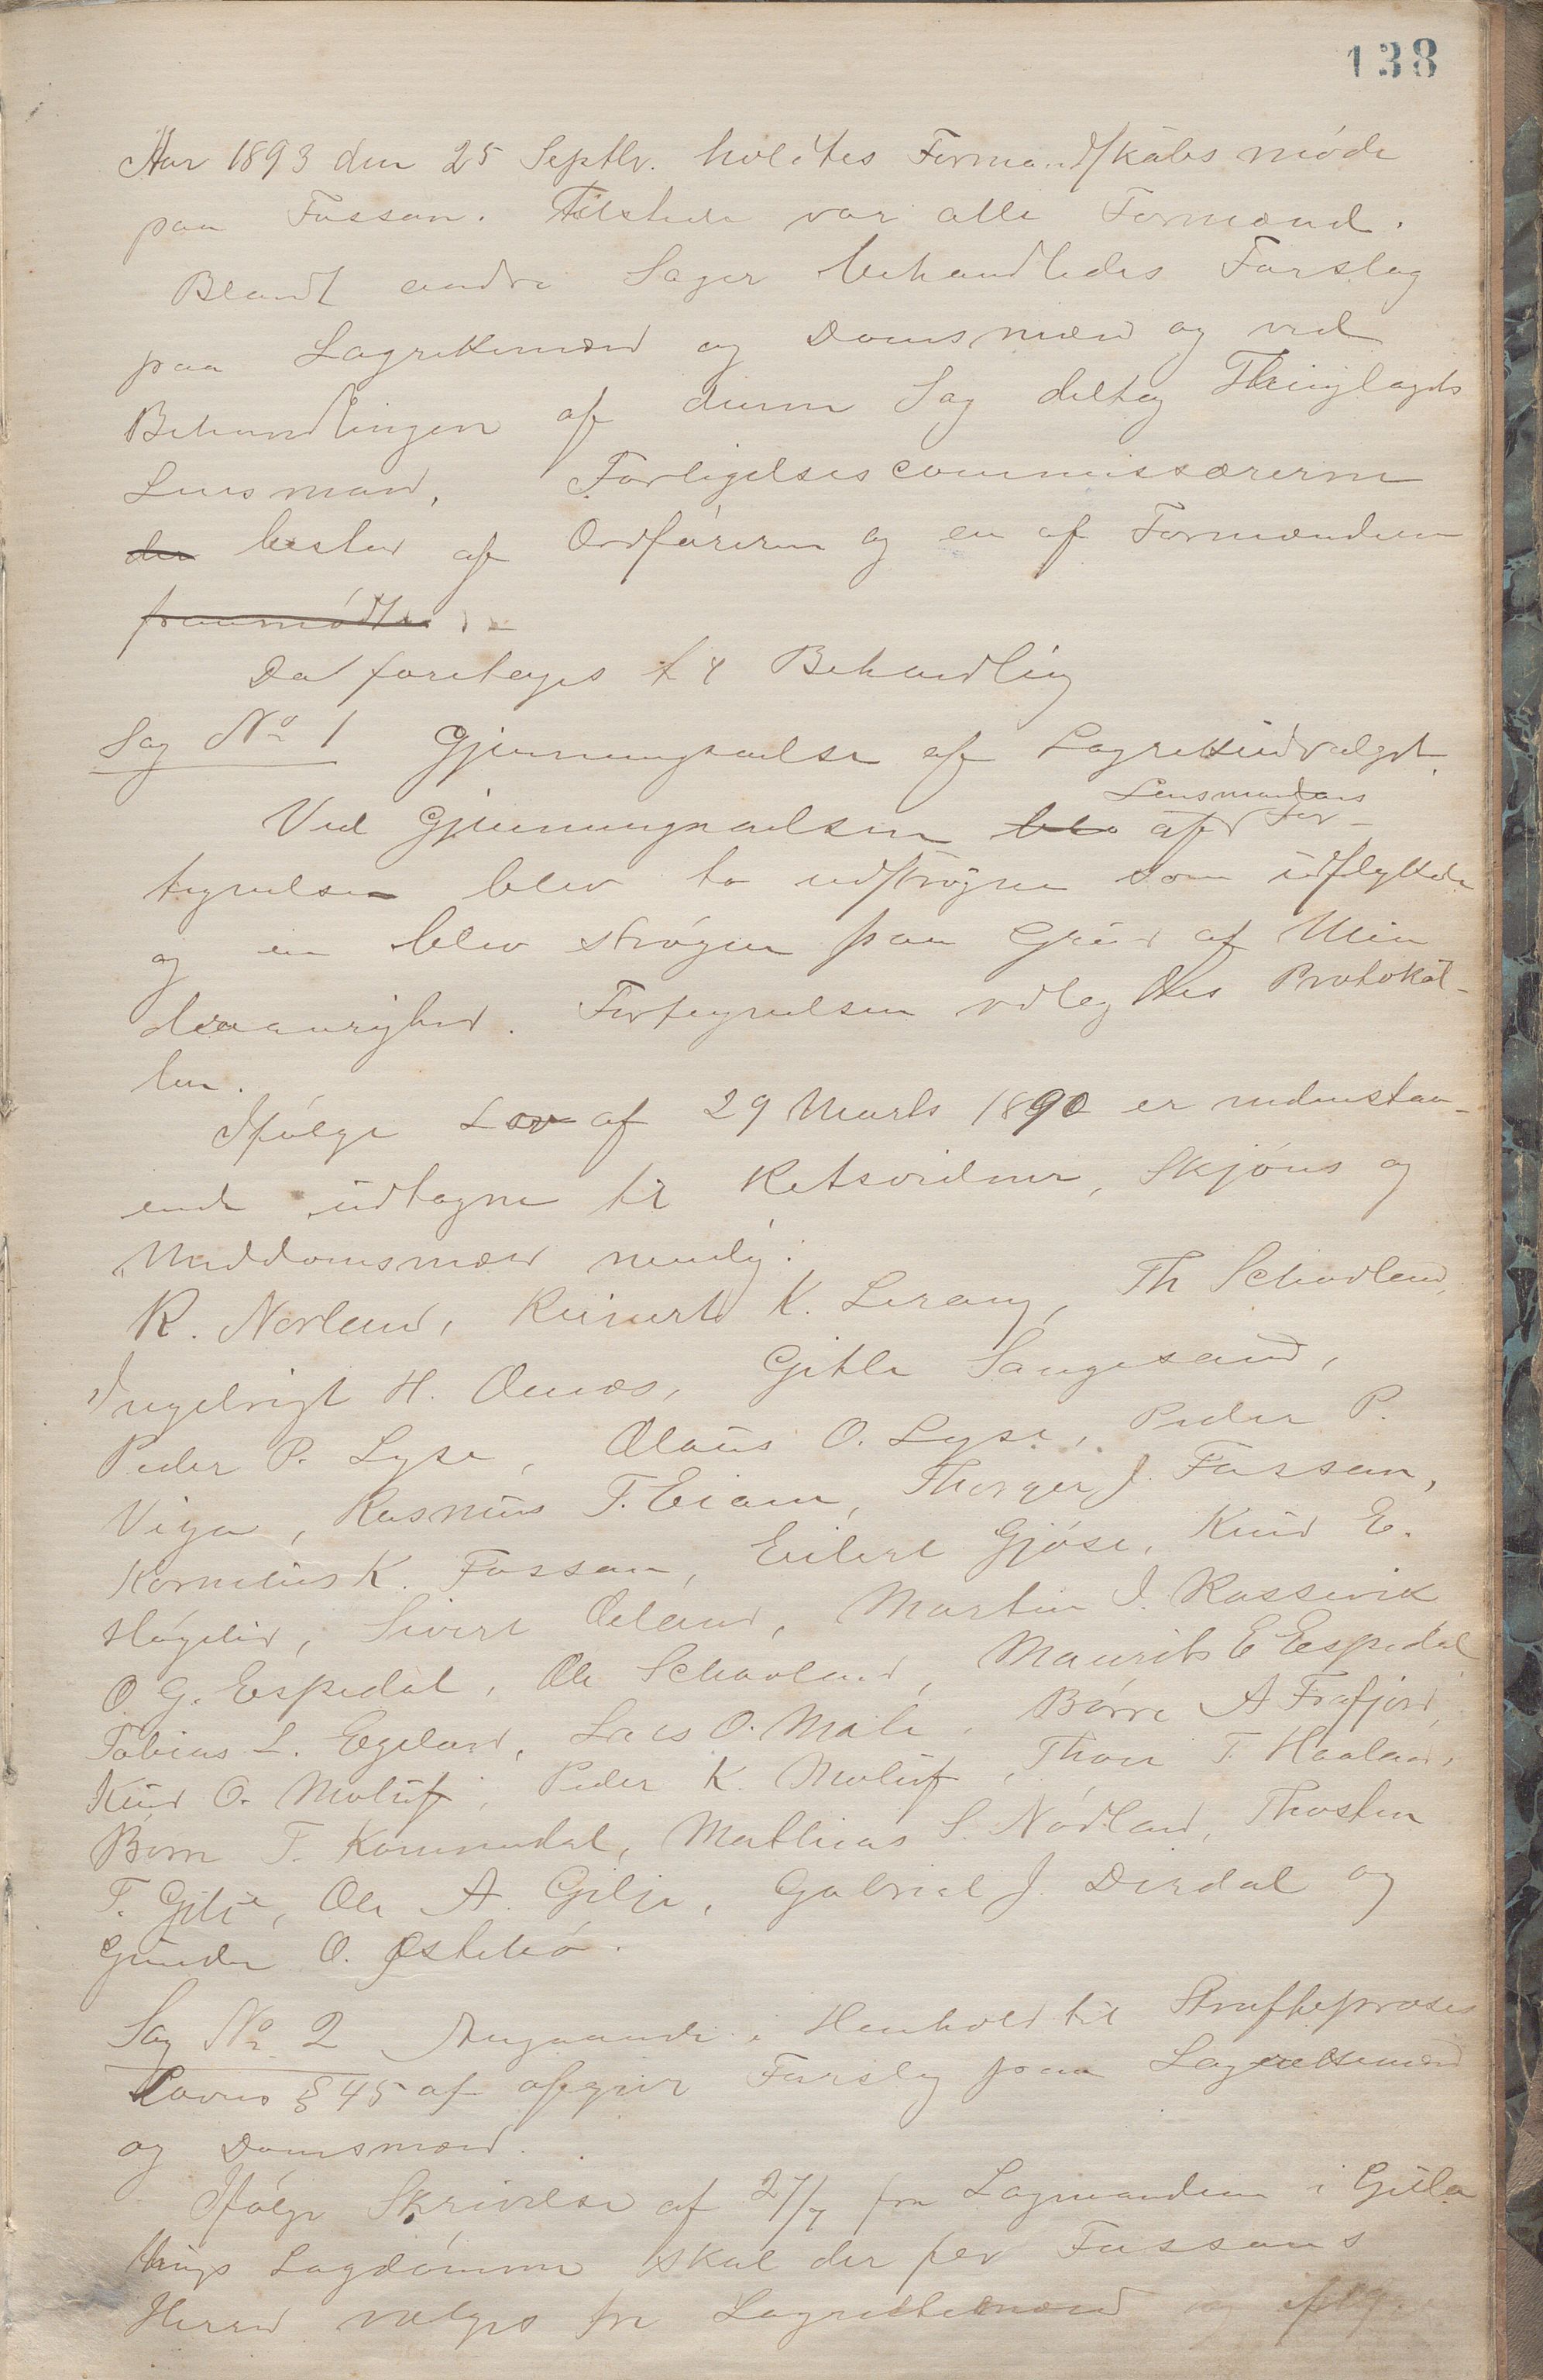 138
Aar 1893 den 25 Septbr. holdtes Formandskabsmøde
paa Fossan. Tilstede var alle Formænd.
Blandt andre Sager behandledes Forslag
paa Lagrettemænd og Domsmænd og ved
Behandlingen af denne Sag deltog Thinglagets
Lensmand, Forligelsescommissærerne
der bestod af Ordføreren og en af Formændene
fremmødte
Da foretages til Behandling
Sag No 1 Gjennemgaaelse af Lagretteudvalget.
Lensmandens
Ved Gjennemgaaelsen blev af For-
tegnelse blev to udstrøgne som udflyttede
og en blev strøgen paa Grund af Min
dreaarighed. Fortegnelsen vedlagdes Protokol-
len.
Ifølge Lov af 29 Marts 1890 er nedenstaa-
ende udtagne til Retsvidner, Skjøns og
Meddomsmænd nemlig:
R. Norland, Reinert K. Lerang, Th Schavland,
Ingebrigt H. Oanæs, Gitle Sangesand,
Peder P. Lyse, Olaus O. Lyse, Peder P.
Viga, Rasmus T. Eiane, Thorger J. Fossan,
Kornelius K. Fossan, Eilert Gjøse, Knud E.
Høgelid, Sivert Øeland, Martin I. Rossevik
O. G. Espedal, Ole Schavland, Maurits E Espedal
Tobias L. Egeland, Lars O. Mæle, Børre A Frafjord,
Knud O. Moluf, Peder K. Moluf, Thore T. Haaland,
Børre T. Kommedal, Mathias S. Nødland, Thosten
T. Gilje, Ole A. Gilje, Gabriel J. Dirdal og
Gunder O. Østebø.
Sag No 2 Angaaende i Henhold til Straffeproses
Lovens § 45 at afgive Forslag paa Lagrettemænd
og Domsmænd.
Ifølge Skrivelse af 27/7 fra Lagmanden i Gula
things Lagdømme skal der for Fossans
Herred vælges fre Lagrettemænd og